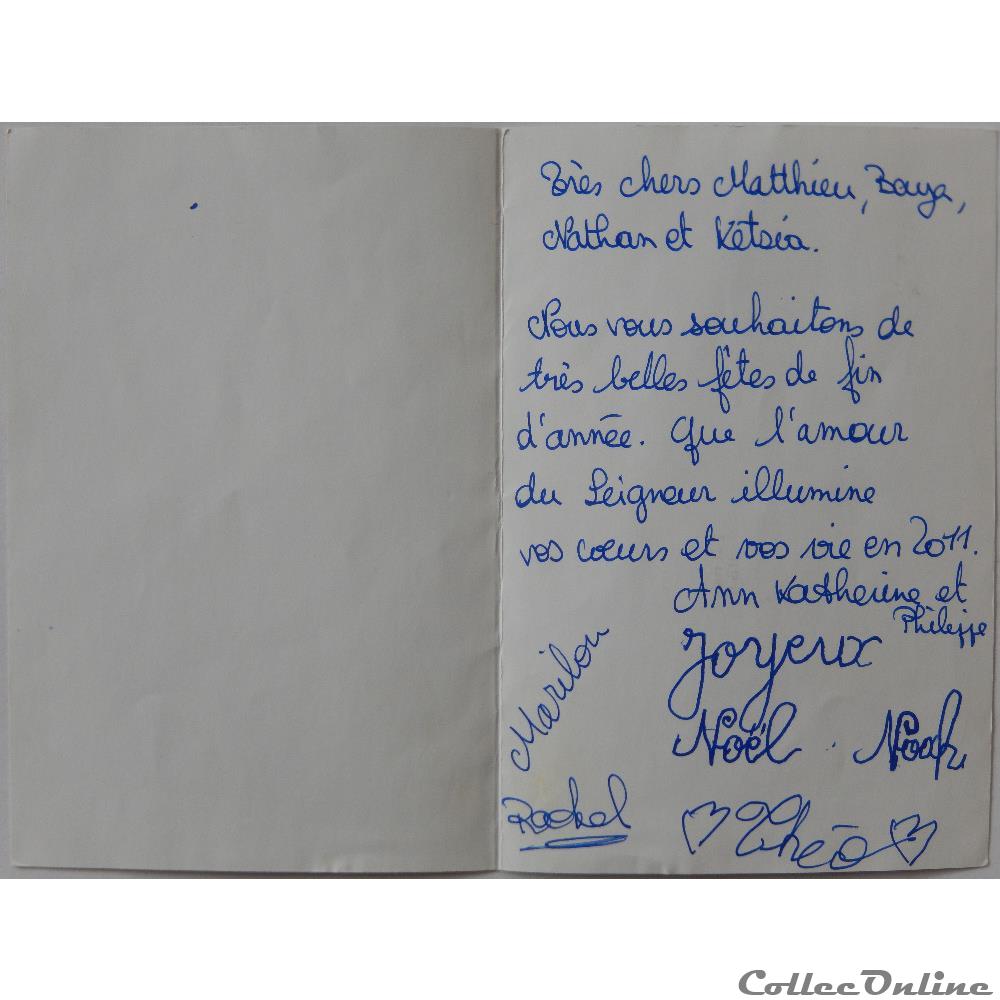 Très chers Matthieu, Zaya,
Nathan et Kétsia.
Nous vous souhaitons de
très belles fêtes de fin
d'année. Que l'amour
du Seigneur illumine
vos cœurs et vos vie en 2011.
Ann Katherine et
Philippe
Joyeux
Noël . Noah
Marilou
Rachel
Théo
CollecOnline